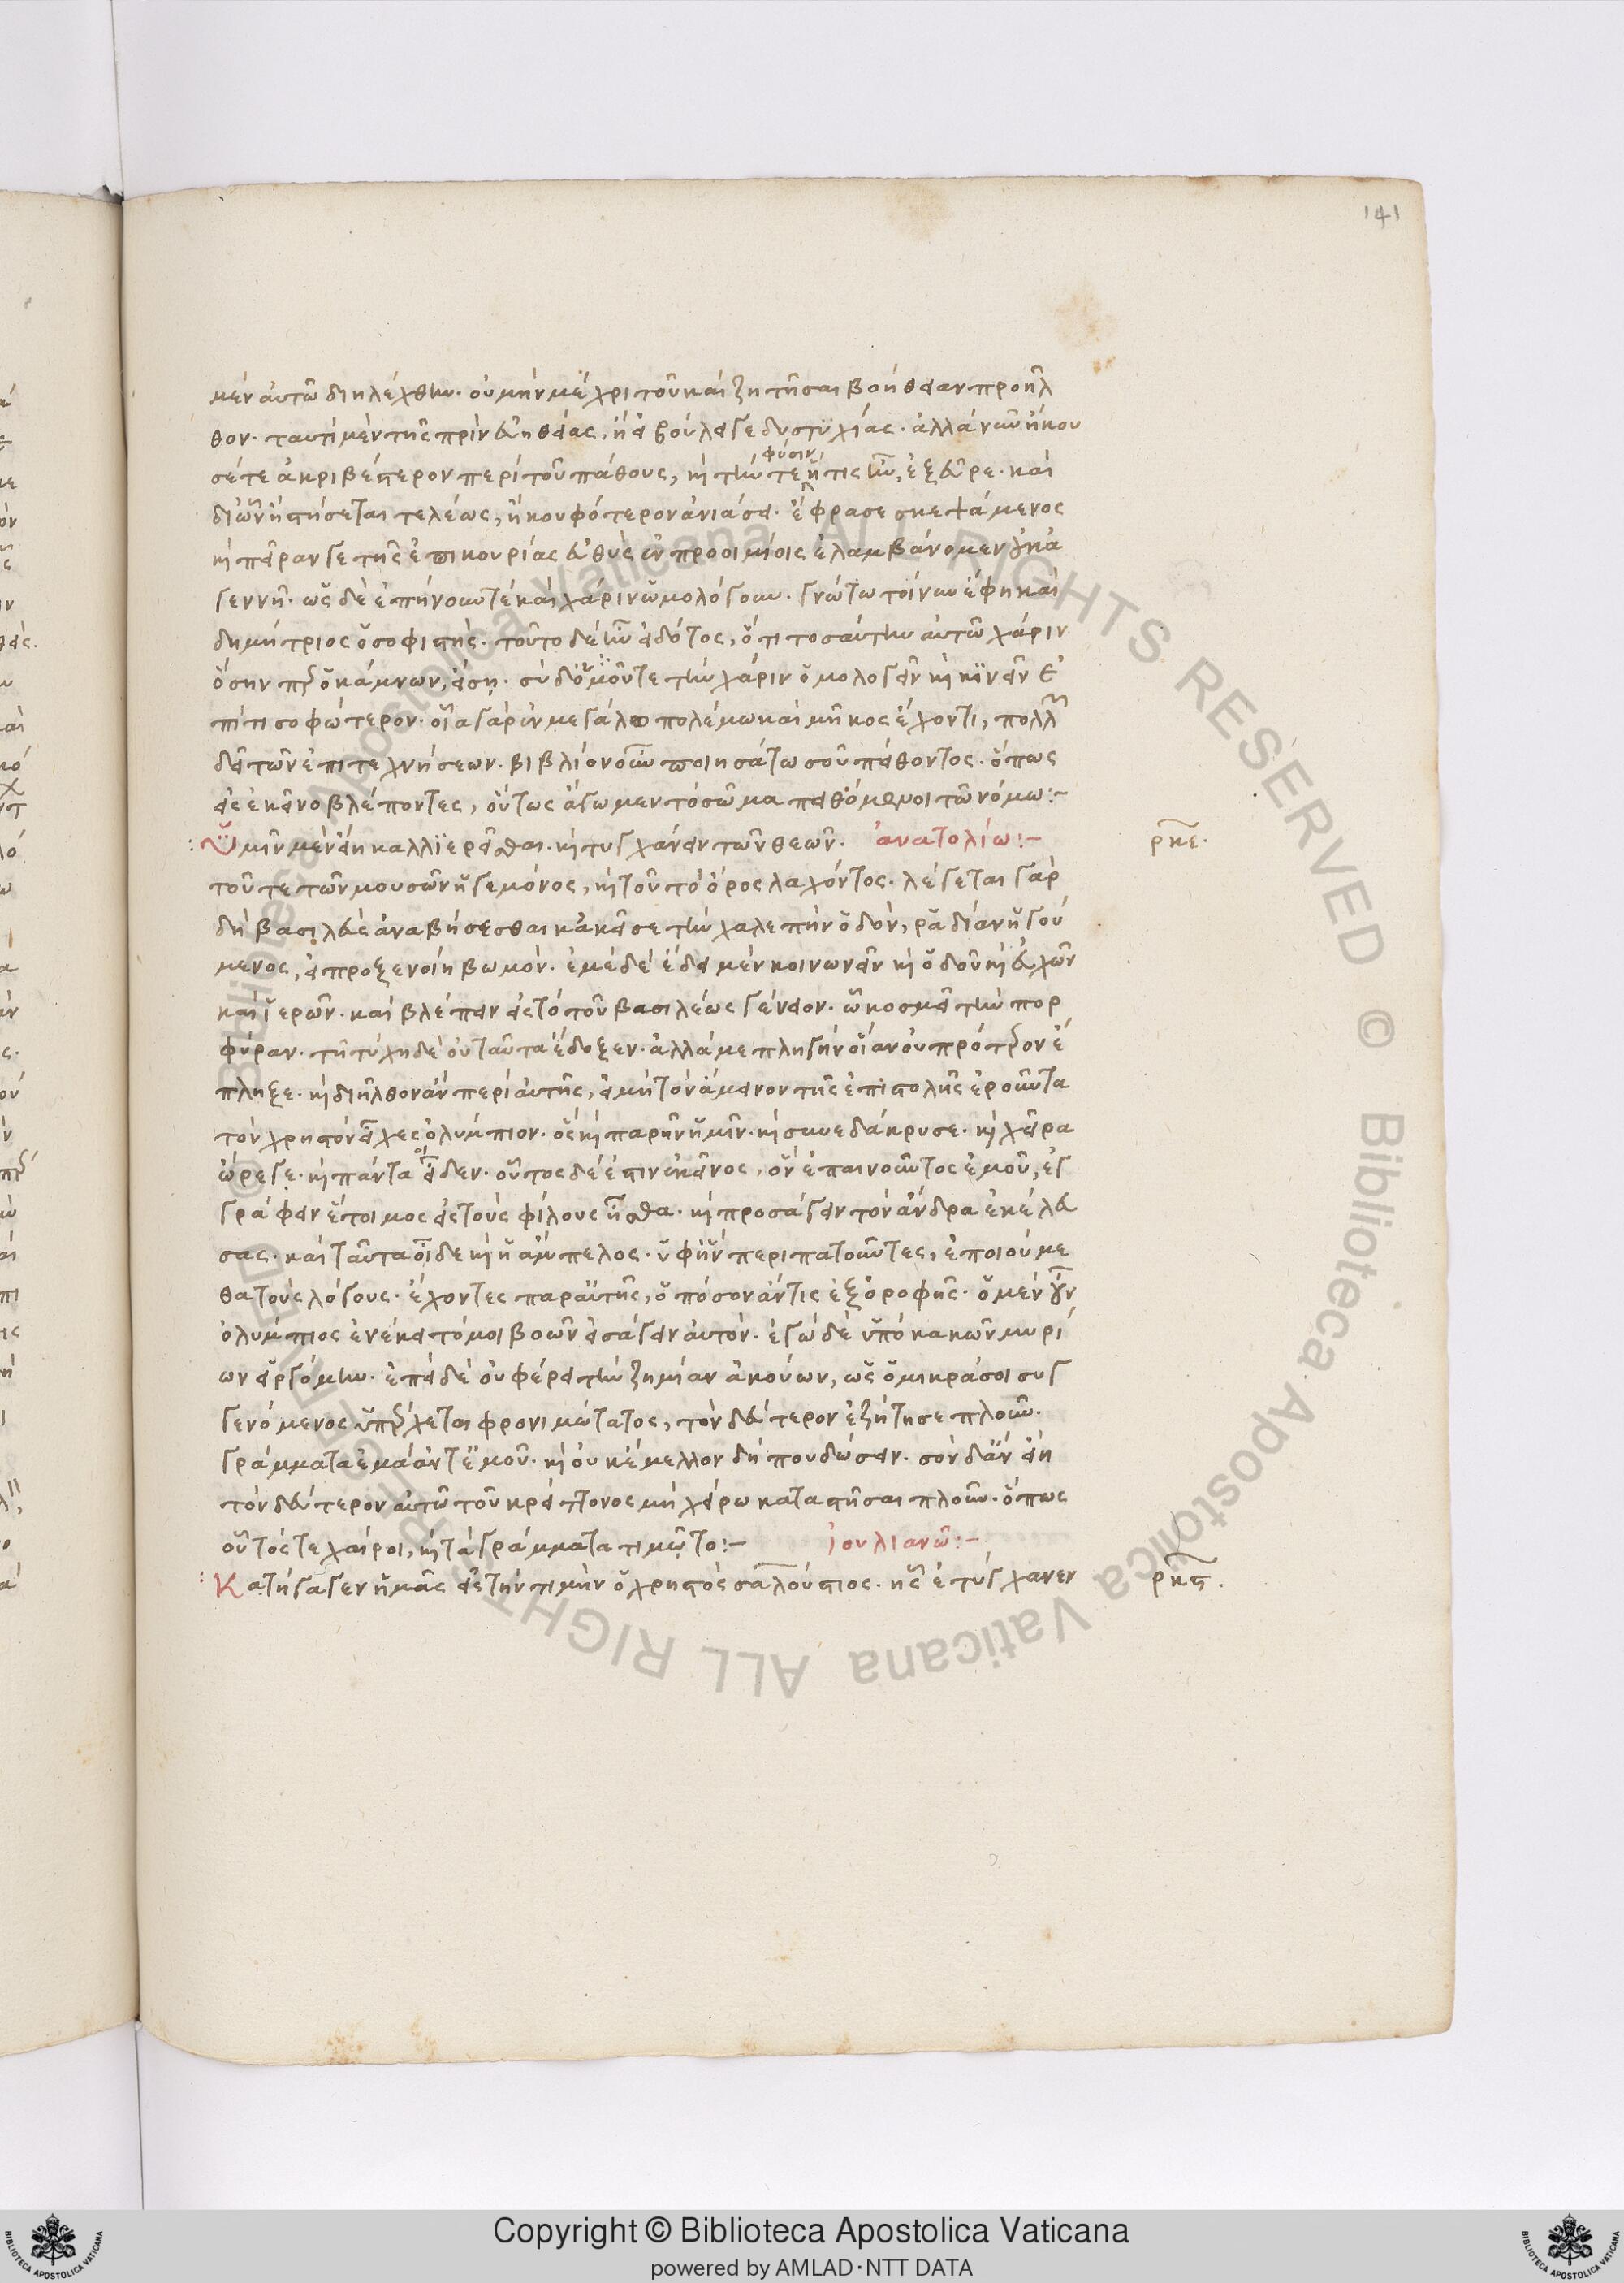 141
μὲν αὐτῶ διηλέχθην· οὐ μὴν μέχρι τοῦ καὶ ζητῆσαι βοήθειαν προῆλ
θον· ταυτὶ μὲν τῆς πρὶν εὐηθείας, ἢ εἰ βούλει γε δυστυχίας· ἀλλὰ νῦν ἠκού
φύσιν
σέ τε ἀκριβέστερον περὶ τοῦ πάθους, καὶ τήν τε ἥτις ἦν, ἐξεῦρε· καὶ
δι' ὧν ἢ στήσεται τελέως, ἢ κουφότερον ἀνιάσει· ἔφρασε σκεψάμενος
καὶ πεῖραν γε τῆς ἐπικουρίας εὐθὺς ἐν προοιμίοις ἐλαμβάνομεν
γεννῆ· ὡς δὲ ἐπῄνουν τε καὶ χάριν ὡμολόγουν· γνώτω τοίνυν ἔφη καὶ
δημήτριος ὁ σοφιστής· τοῦτο δὲ ἦν εἰδότος, ὅτι τοσαύτην αὐτῶ χάριν
ὅσην περ ὁ κάμνων, εἴση· σὺ δ' ὅμοῦ τε τὴν χάριν ὁμολογεῖν καὶ κινεῖν ἐ
πί τι σοφώτερον· οἷα γὰρ ἐν μεγάλω πολέμω καὶ μῆκος ἔχοντι, πολλῶν
δεῖ τῶν ἐπιτεχνήσεων· βιβλίον οὖν ποιησάτω σοῦ πείθοντος· ὅπως
εἰς ἐκεῖνο βλέποντες, οὕτως ἄγωμεν τὸ σῶμα πειθόμενοι τῶ νόμω:-
Ὑμῖν μὲν εἴη καλλιερεῖσθαι· καὶ τυγχάνειν τῶν θεῶν· ἀνατολίω:- ρκε·
τοῦ τε τῶν μουσῶν ἡγεμόνος, καὶ τοῦ τὸ ὄρος λαχόντος· λέγεται γὰρ
δὴ βασιλεὺς ἀναβήσεσθαι κἀκεῖσε τὴν χαλεπὴν ὁδὸν, ῥαδίαν ἡγού
μενος, εἰ προξενοίη βωμόν· ἐμὲ δὲ ἔδει μὲν κοινωνεῖν καὶ ὁδοῦ καὶ εὐχῶν
καὶ ἱερῶν· καὶ βλέπειν εἰς τὸ τοῦ βασιλέως γένειον· ὧ κοσμεῖ τὴν πορ
φύραν· τῆ τύχη δὲ οὐ ταῦτα ἔδοξεν· ἀλλά με πληγὴν οἵαν οὐ πρότερον ἔ
πληξε· καὶ διῆλθον ἂν περὶ αὐτῆς, εἰ μὴ τὸν ἀμείνον τῆς ἐπιστολῆς ἐροῦντα
τὸν χρηστὸν εἶχες ὀλύμπιον· ὃς καὶ παρῆν ἡμῖν· καὶ συνεδάκρυσε· καὶ χεῖρα
ὤρεγε· καὶ πάντα οἶδεν· οὗτος δέ ἐστιν ἐκεῖνος, ὃν ἐπαινοῦντος ἐμοῦ, ἐγ
γράφειν ἕτοιμος εἰς τοὺς φίλους ἦσθα· καὶ προσάγειν τὸν ἄνδρα ἐκέλευ
σας· καὶ ταῦτα οἶδε καὶ ἡ ἄμπελος· ὑφ' ἣν περιπατοῦντες, ἐποιούμε
θα τοὺς λόγους· ἔχοντες παρ' αὐτῆς, ὁπόσον ἄν τις ἐξ ὀροφῆς· ὁ μὲν οὖν
ὀλύμπιος ἐνέκειτό μοι βοῶν εἰσάγειν αὐτόν· ἐγὼ δὲ ὑπὸ κακῶν μυρί
ων εἰργόμην· ἐπεὶ δὲ οὐ φέρει τὴν ζημίαν ἀκούων, ὡς ὁ μικρά σοι συγ
γενόμενος ὑπέρχεται φρονιμώτατος, τὸν δεύτερον ἐζήτησε πλοῦν·
γράμματα ἐμὰ ἀντ' ἐμοῦ· καὶ οὐκ ἔμελλον δήπου δώσειν· σὸν δ' ἂν εἴη
τὸν δεύτερον αὐτῶ τοῦ κρείττονος μὴ χείρω καταστῆσαι πλοῦν· ὅπως
οὗτός τε χαίροι, καὶ τὰ γράμματα τιμῶτο:- ἰουλιανῶ:-
Κατήγαγεν ἡμᾶς εἰς τὴν τιμὴν ὁ χρηστὸς σαλούστιος· ἧς ἐτύγχανεν ρκϛ·
Copyright © Biblioteca Apostolica Vaticana
powered by AMLAD·NTT DATA